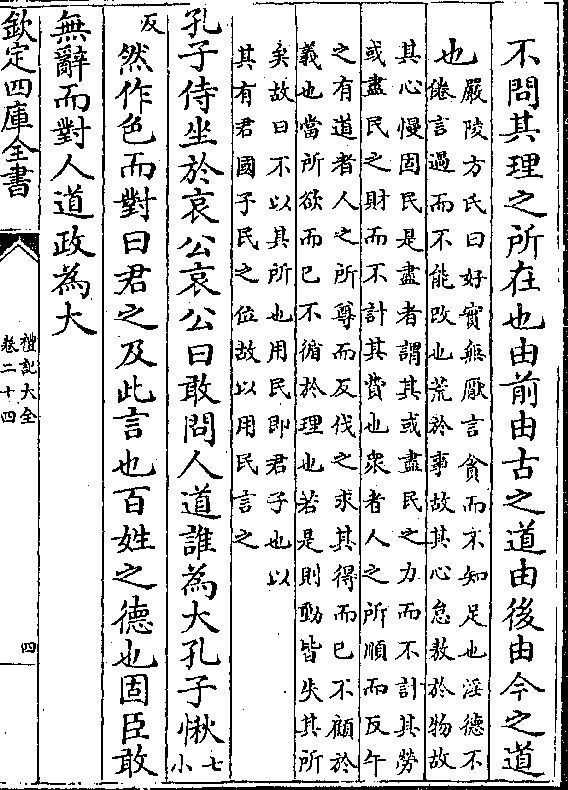 不問其理之所在也由前由古之道由後由今之道
也
嚴陵方氏曰好實無厭言貪而不知足也淫德不
倦言過而不能改也荒於事故其心怠敖於物故
其心慢固民是盡者謂其或盡民之力而不計其勞
或盡民之財而不計其費也衆者人之所順而反午
之有道者人之所尊而反伐之求其得而已不顧於
義也當所欲而已不循於理也若是則動皆失其所
矣故曰不以其所也用民即君子也以
其有君國子民之位故以用民言之
孔子侍坐於哀公哀公曰敢問人道誰為大孔子愀
七
小
反
然作色而對曰君之及此言也百姓之德也固臣敢
無辭而對人道政為大
欽定四庫全書
禮記大全
卷二十四
四